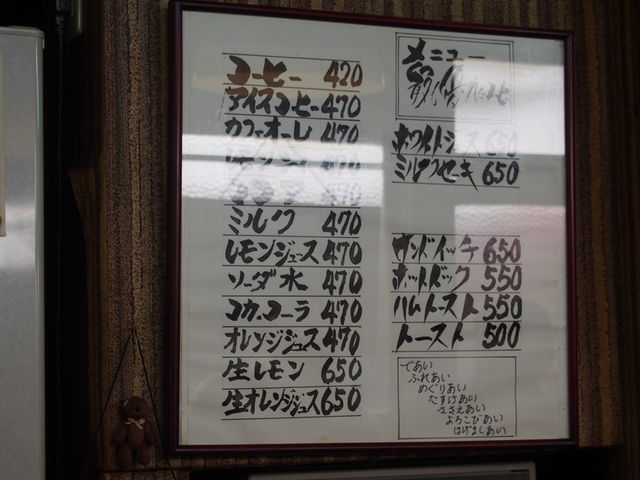 コーヒー 420
アイスコーヒー 470
カフェオーレ 470
470
ミルク 470
レモンジュース 470
ソーダ水 470
コカ・コーラ 470
オレンジジュース 470
生レモン 650
生オレンジジュース 650
メニュー
ミルクセーキ 650
サンドイッチ 650
ホットドック 550
ハムトースト 550
トースト 500
であい
ふれあい
めぐりあい
たすけあい
ささえあい
よろこびあい
はげましあい